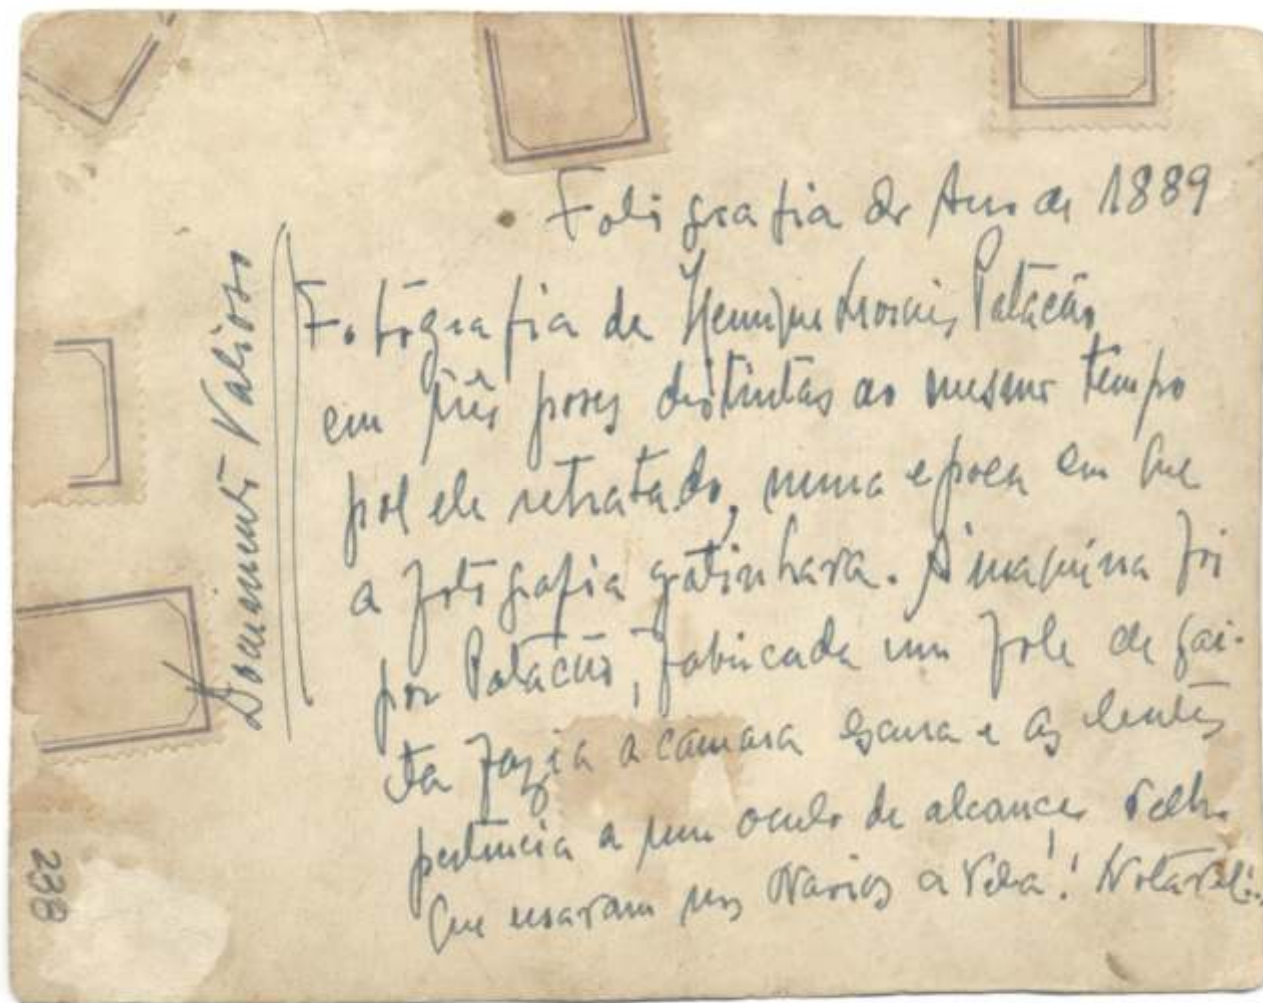 Fotografia do Ano de 1889
Fotografia de Henrique Morais Patacão
em três poses distintas ao mesmo tempo
por ele retratado, numa epoca em que
a fotografia gatinhava. A maquina foi
por Patacão, fabricada um fole de gai-
ta fazia a camara escura e as lentes
pertencia a um oculo de alcance, velho
que usavam nos Navios a Vela! Notavel!..
Documento Valioso
238